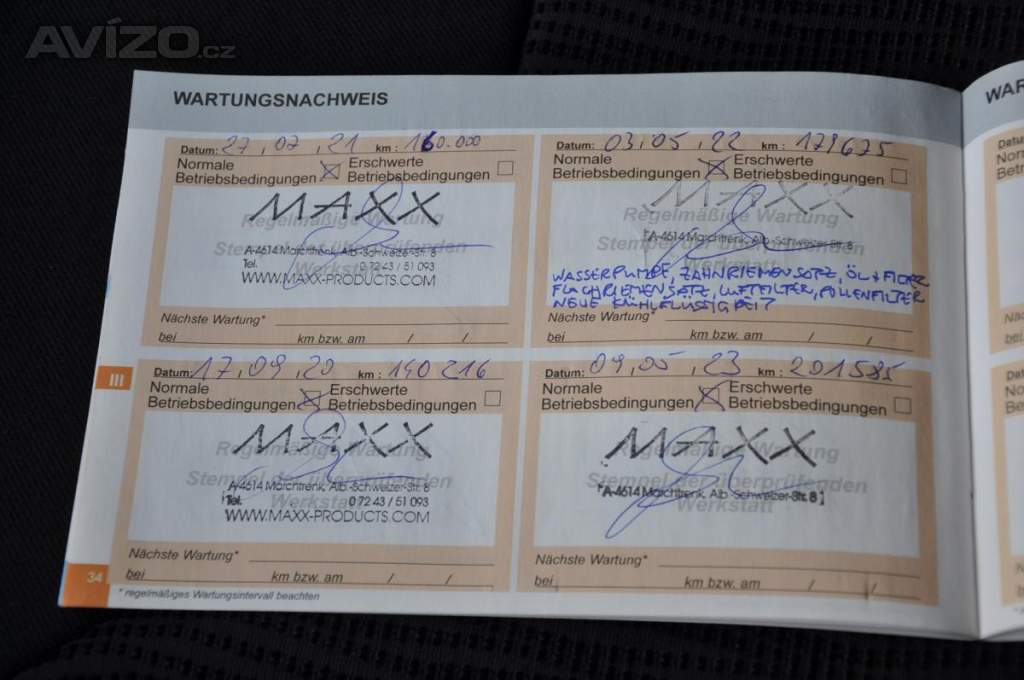 AVÍZO.cz
WARTUNGSNACHWEIS
WAR
Datum: 27, 07, 21 km: 160.000
Normale Betriebsbedingungen
Erschwerte Betriebsbedingungen
MAXX
Regelmäßige Wartung
Stempel der überprüfenden Werkstatt
A-4614 Marchtrenk, Alb.-Schweizer-Str. 8
Tel. 0 72 43 / 51 093
WWW.MAXX-PRODUCTS.COM
Nächste Wartung*
bei km bzw. am / /
Datum: 03, 05, 22 km: 179675
Normale Betriebsbedingungen
Erschwerte Betriebsbedingungen
MAXX
Regelmäßige Wartung
Stempel der überprüfenden Werkstatt
A-4614 Marchtrenk, Alb.-Schweizer-Str. 8
WASSERPUMPE, ZAHNRIEMENSATZ, ÖL + FILTER
FLACHRIEMENSATZ, LUFTFILTER, POLLENFILTER
NEUE KÜHLFLÜSSIGKEIT
Nächste Wartung*
bei km bzw. am / /
III
Datum: 17, 09, 20 km: 140216
Normale Betriebsbedingungen
Erschwerte Betriebsbedingungen
MAXX
Regelmäßige Wartung
Stempel der überprüfenden Werkstatt
A-4614 Marchtrenk, Alb.-Schweizer-Str. 8
Tel. 0 72 43 / 51 093
WWW.MAXX-PRODUCTS.COM
Nächste Wartung*
bei km bzw. am / /
Datum: 09, 05, 23 km: 201585
Normale Betriebsbedingungen
Erschwerte Betriebsbedingungen
MAXX
Regelmäßige Wartung
Stempel der überprüfenden Werkstatt
A-4614 Marchtrenk, Alb.-Schweizer-Str. 8
Nächste Wartung*
bei km bzw. am / /
34
* regelmäßiges Wartungsintervall beachten